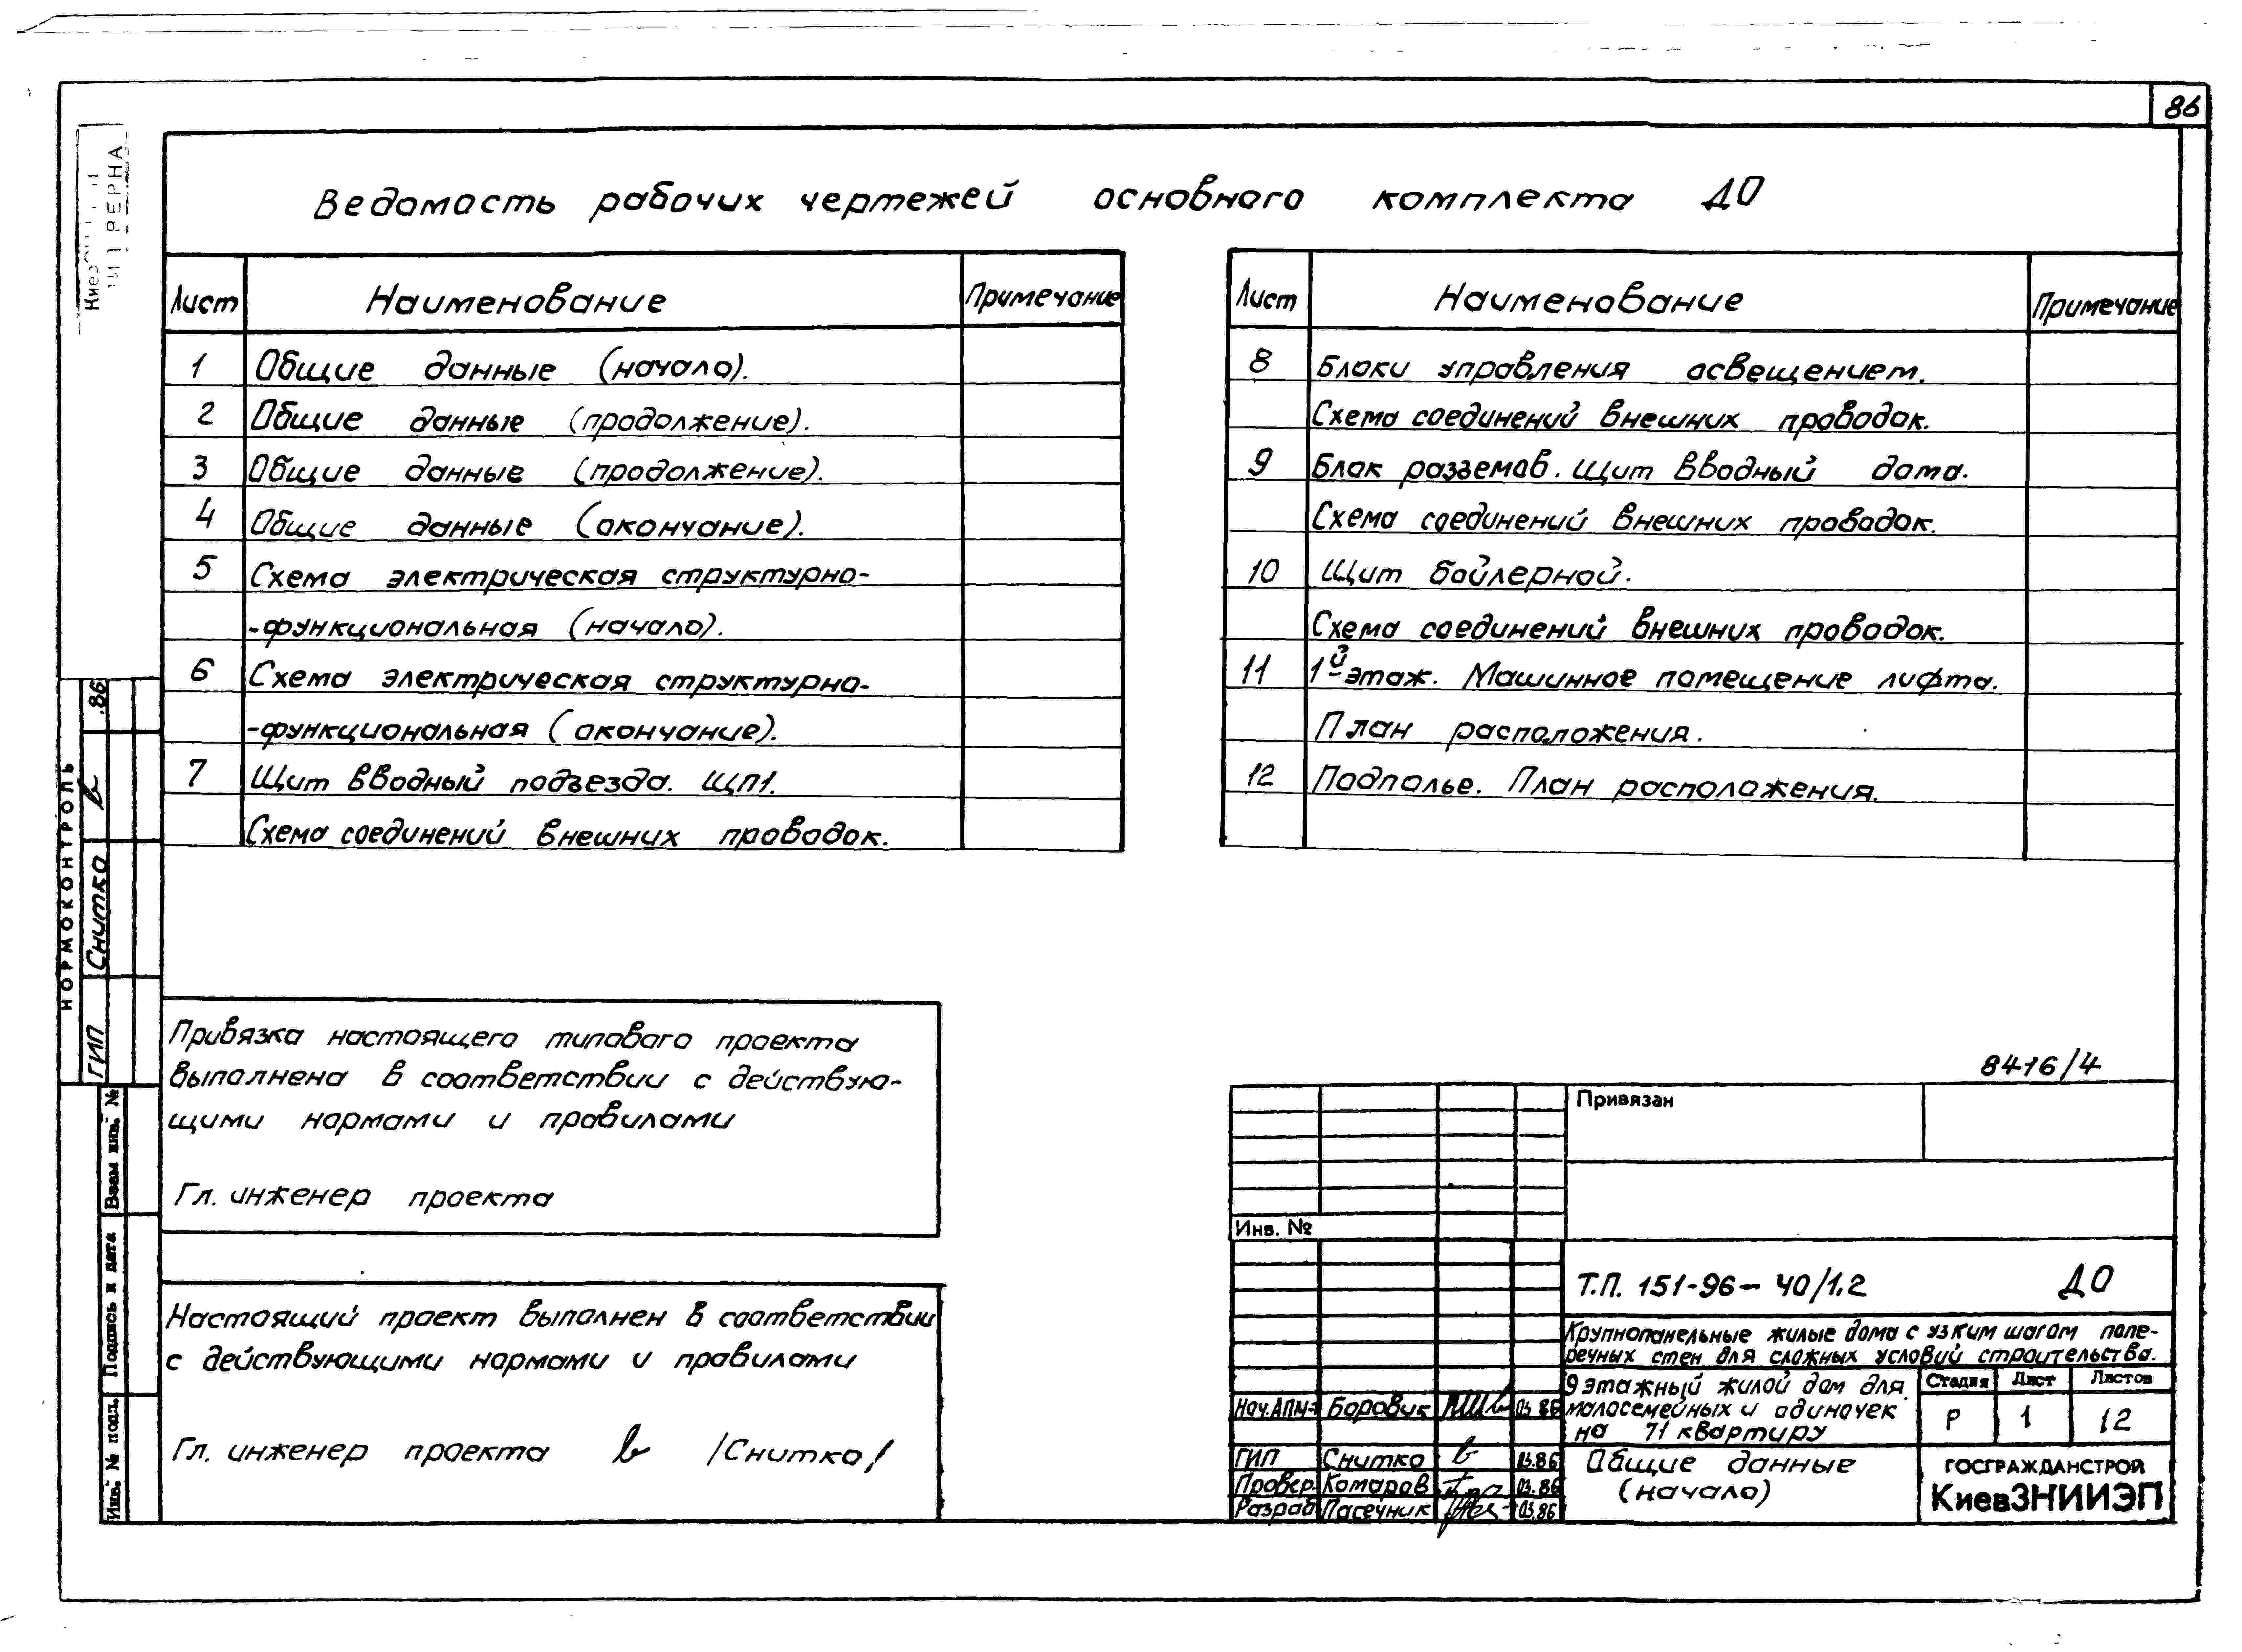 86
Ведомость рабочих чертежей основного комплекта ДО
Лист Наименование Примечание
1 Общие данные (начало).
2 Общие данные (продолжение).
3 Общие данные (продолжение).
4 Общие данные (окончание).
5 Схема электрическая структурно-
-функциональная (начало).
6 Схема электрическая структурно-
-функциональная (окончание).
7 Щит вводный подъезда. ЩП1.
Схема соединений внешних проводок.
Лист Наименование Примечание
8 Блоки управления освещением.
Схема соединений внешних проводок.
9 Блок разъемов. Щит вводный дома.
Схема соединений внешних проводок.
10 Щит бойлерной.
Схема соединений внешних проводок.
11 1й этаж. Машинное помещение лифта.
План расположения.
12 Подполье. План расположения.
НОРМОКОНТРОЛЬ
ГИП Снитко .86
Взам инв. №
Подпись и дата
Инв. № подл.
Привязка настоящего типового проекта
выполнена в соответствии с действую-
щими нормами и правилами
Гл. инженер проекта
Настоящий проект выполнен в соответствии
с действующими нормами и правилами
Гл. инженер проекта /Снитко/
8416/4
Привязан
Инв. №
Т.П. 151-96-40/1.2 ДО
Крупнопанельные жилые дома с узким шагом попе-
речных стен для сложных условий строительства.
9 этажный жилой дом для
малосемейных и одиночек
на 71 квартиру
Стадия Лист Листов
Р 1 12
Нач.АПМ- Боровик 03.86
ГИП Снитко 03.86
Провер. Комаров 03.86
Разраб Пасечник 03.86
Общие данные
(начало)
ГОСГРАЖДАНСТРОЙ
КиевЗНИИЭП